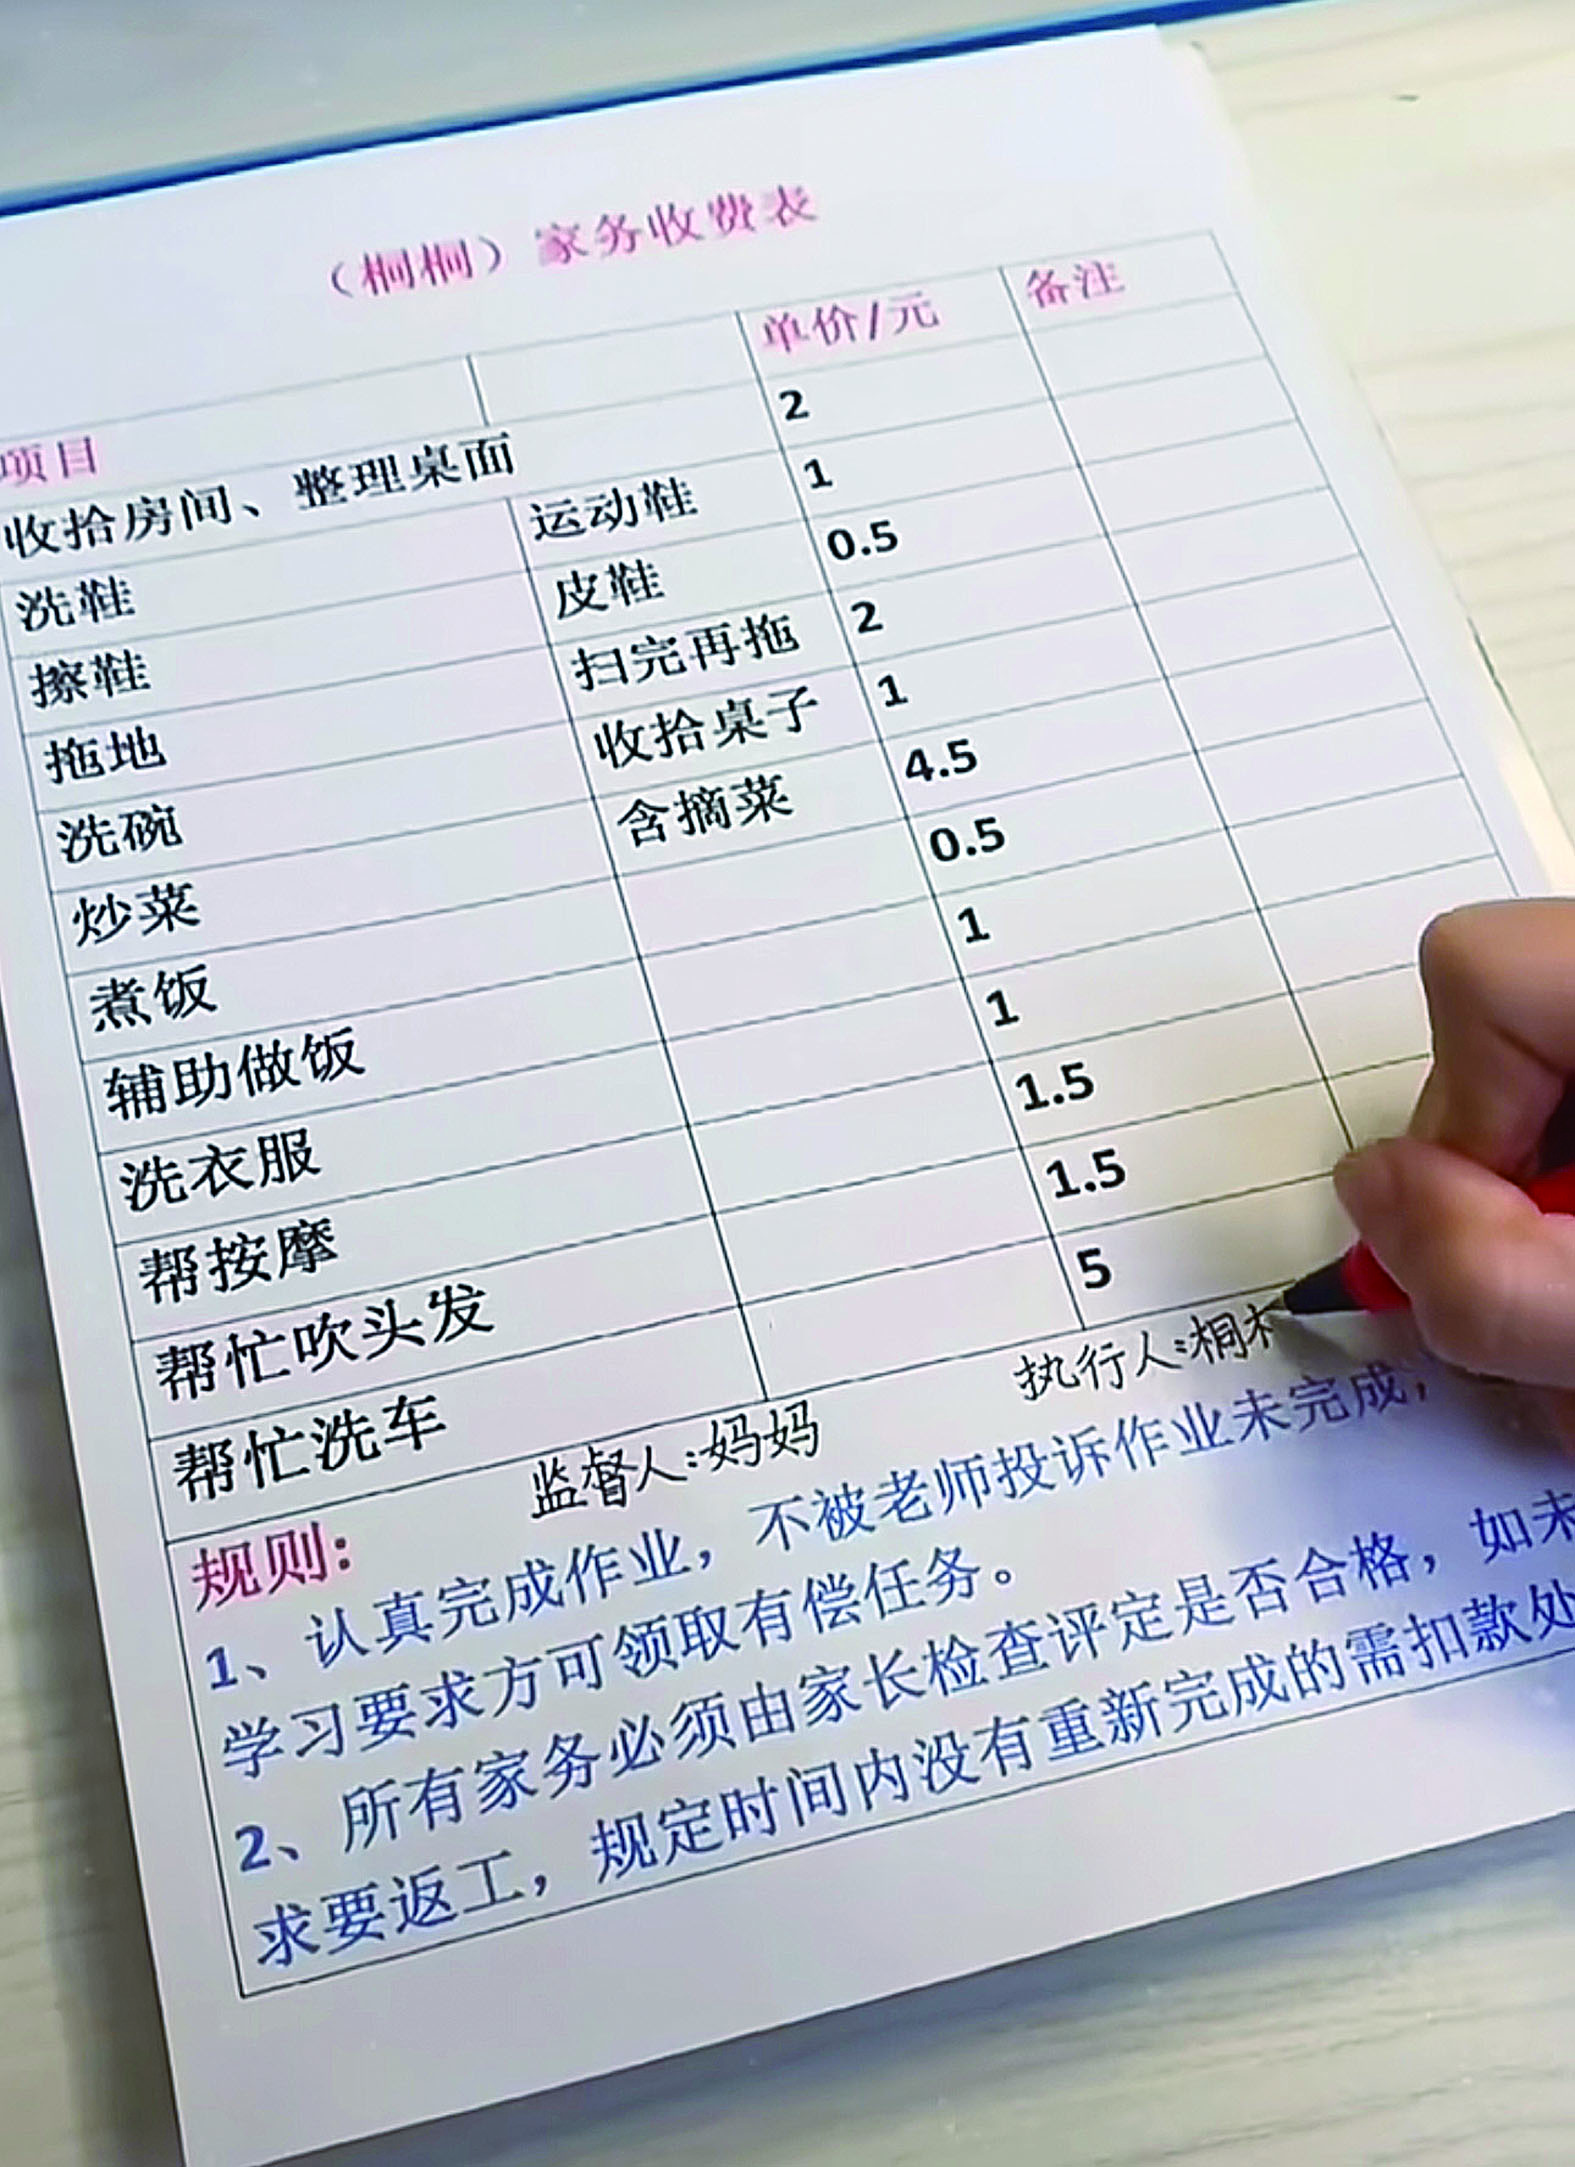 （桐桐）家务收费表
项目 单价/元 备注
收拾房间、整理桌面 2
洗鞋 运动鞋 1
擦鞋 皮鞋 0.5
拖地 扫完再拖 2
洗碗 收拾桌子 1
炒菜 含摘菜 4.5
煮饭 0.5
辅助做饭 1
洗衣服 1
帮按摩 1.5
帮忙吹头发 1.5
帮忙洗车 5
监督人:妈妈 执行人:桐
规则:
1、认真完成作业，不被老师投诉作业未完成，
学习要求方可领取有偿任务。
2、所有家务必须由家长检查评定是否合格，如未
求要返工，规定时间内没有重新完成的需扣款处